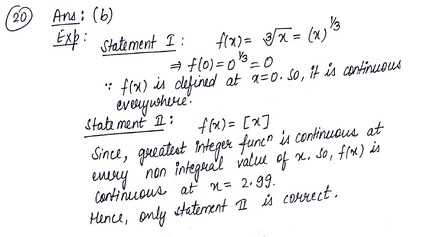 (20) Ans: (b)
Exp: Statement I: f(x) = ∛x = (x)^1/3
⇒ f(0) = 0^1/3 = 0
∵ f(x) is defined at x=0. So, it is continuous
everywhere.
Statement II: f(x) = [x]
Since, greatest integer funcⁿ is continuous at
every non integral value of x. So, f(x) is
continuous at x = 2.99.
Hence, only statement II is correct.